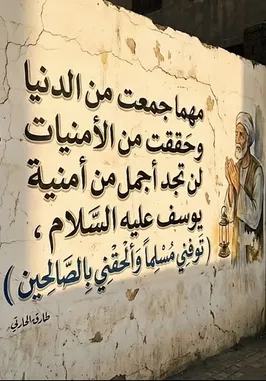 مهما جمعت من الدنيا
وحَققت من الأمنيات
لن تجد أجمل من أمنية
يوسف عليه السَّلام ،
( تَوفَّنِي مُسْلِماً وَأَلْحِقْنِي بِالصَّالِحِين )
طارق الحارثي